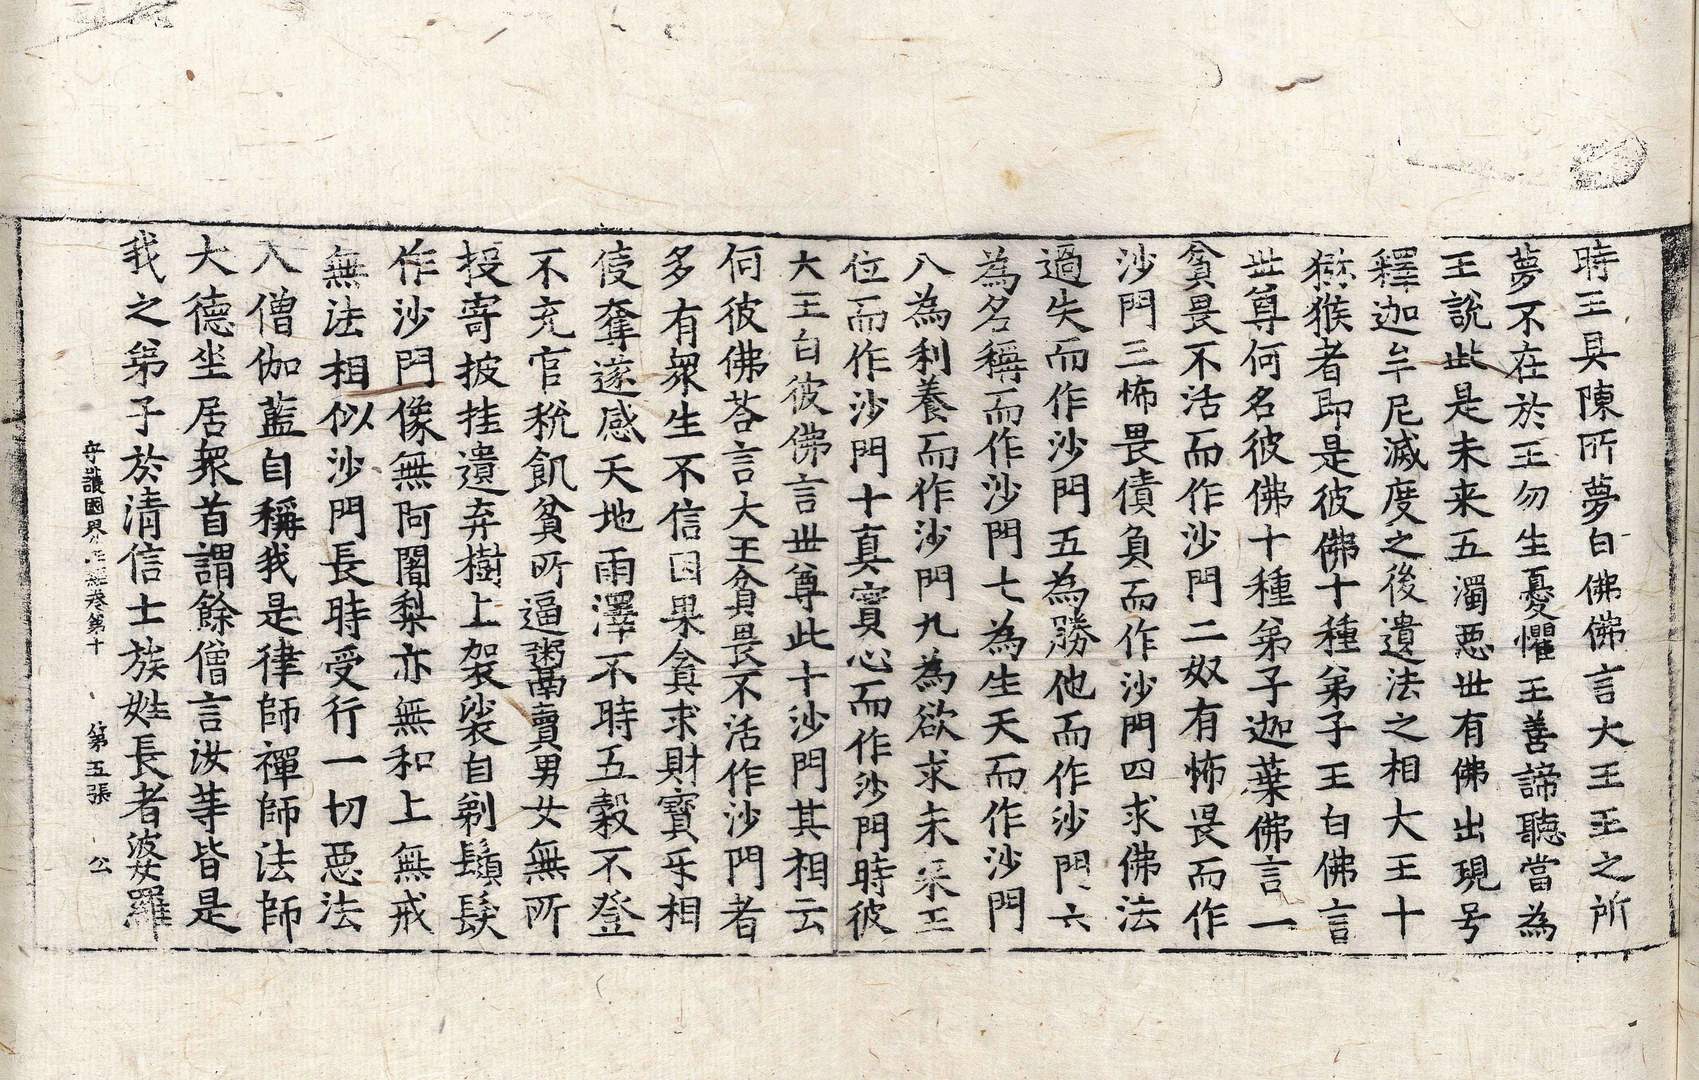 時王具陳所夢白佛佛言大王王之所
夢不在於王勿生憂懼王善諦聽當為
王說此是未来五濁惡世有佛出現号
釋迦牟尼滅度之後遺法之相大王十
獼猴者即是彼佛十種弟子王白佛言
世尊何名彼佛十種弟子迦葉佛言一
貧畏不活而作沙門二奴有怖畏而作
沙門三怖畏債負而作沙門四求佛法
過失而作沙門五為勝他而作沙門六
為名稱而作沙門七為生天而作沙門
八為利養而作沙門九為欲求未来王
位而作沙門十真實心而作沙門時彼
大王白彼佛言世尊此十沙門其相云
何彼佛荅言大王貧畏不活作沙門者
多有衆生不信因果貪求財寶乎相
侵奪遂感天地雨澤不時五穀不登
不充官稅飢貧所逼粥鬻賣男女無所
投寄披挂遺弃樹上袈裟自剃鬚髮
作沙門像無阿闍梨亦無和上無戒
無法相似沙門長時受行一切惡法
入僧伽藍自稱我是律師禪師法師
大德坐居衆首謂餘僧言汝等皆是
我之弟子於清信士族姓長者婆羅
守護國界主經卷第十 第五張 公